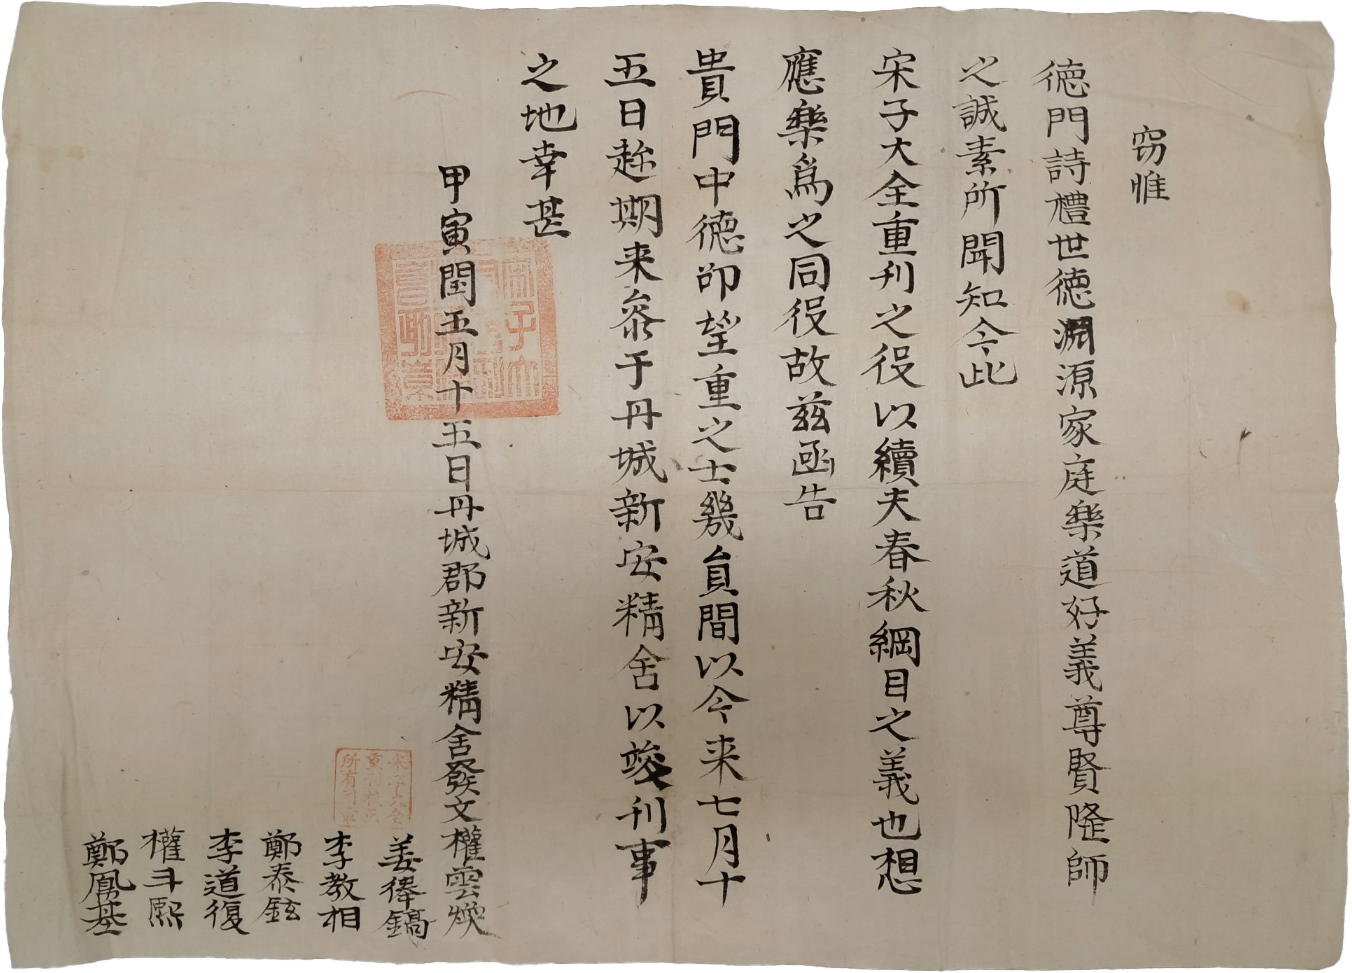 窃惟
德門詩禮世德淵源家庭樂道好義尊賢隆師
之誠素所聞知今此
宋子大全重刊之役以續夫春秋綱目之義也想
應樂爲之同役故茲函告
貴門中德卲望重之士幾員間以今来七月十
五日趂期来叅于丹城新安精舍以竣刊事
之地幸甚
甲寅閏五月十五日丹城郡新安精舍發文權雲煥
姜俸鎬
李敎相
鄭泰鉉
李道復
權斗熙
鄭鳳基